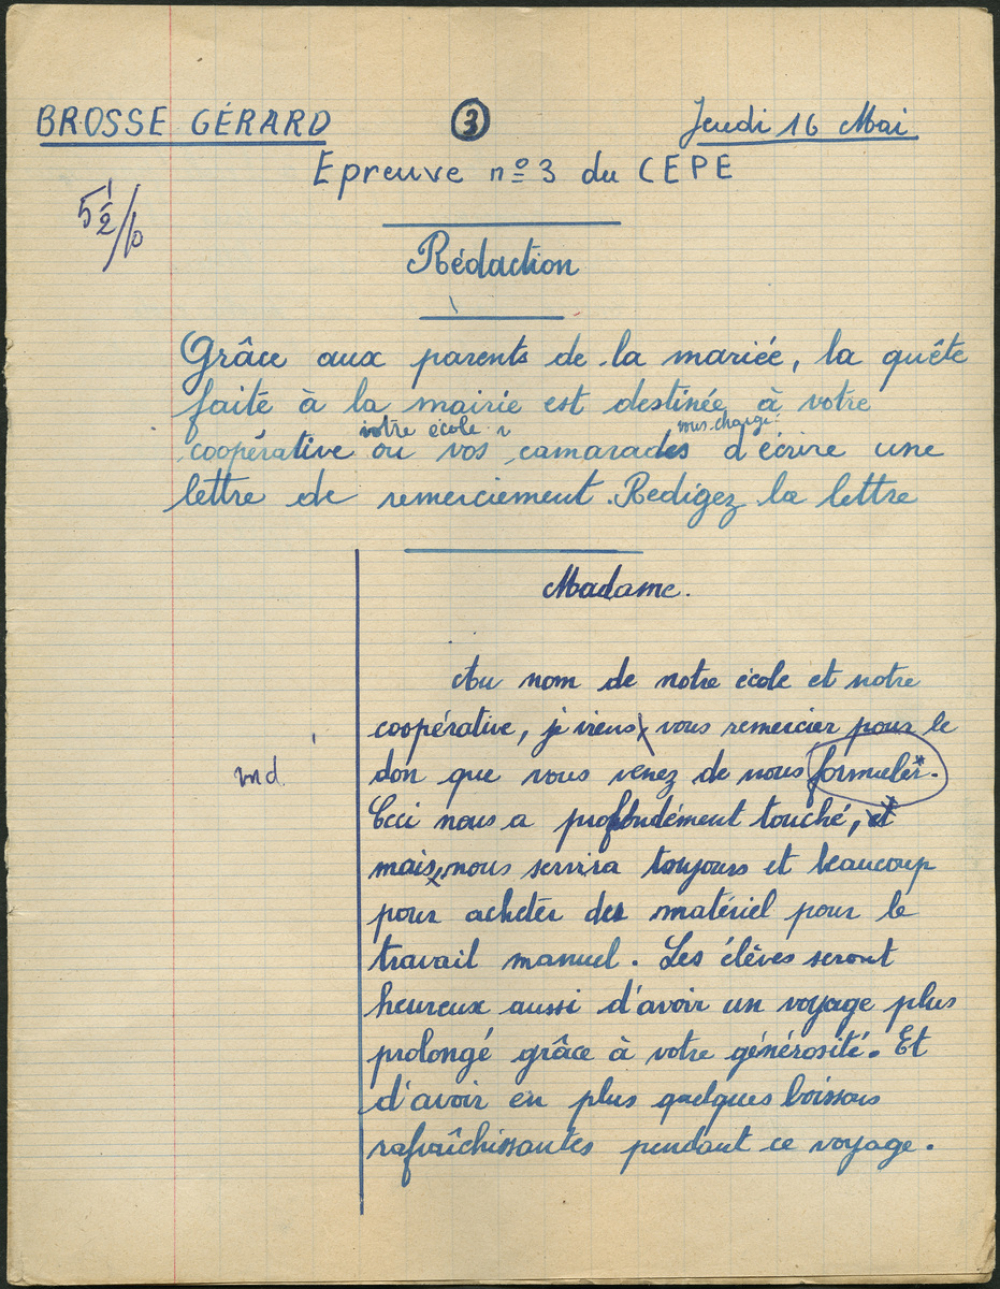 BROSSE GÉRARD
3
Jeudi 16 Mai
Epreuve nº 3 du CEPE
5 1/2 /10
Rédaction
Grâce aux parents de la mariée, la quête
faite à la mairie est destinée à votre
votre école
vous charge
coopérative ou vos camarades d'écrire une
lettre de remerciement. Redigez la lettre
Madame.
Au nom de notre école et notre
coopérative, je viens vous remercier pour le
md
don que vous venez de nous formuler*.
Ceci nous a profondément touché, et
mais nous servira toujours et beaucoup
pour acheter du matériel pour le
travail manuel. Les élèves seront
heureux aussi d'avoir un voyage plus
prolongé grâce à votre générosité. Et
d'avoir en plus quelques boissons
rafraîchissantes pendant ce voyage.